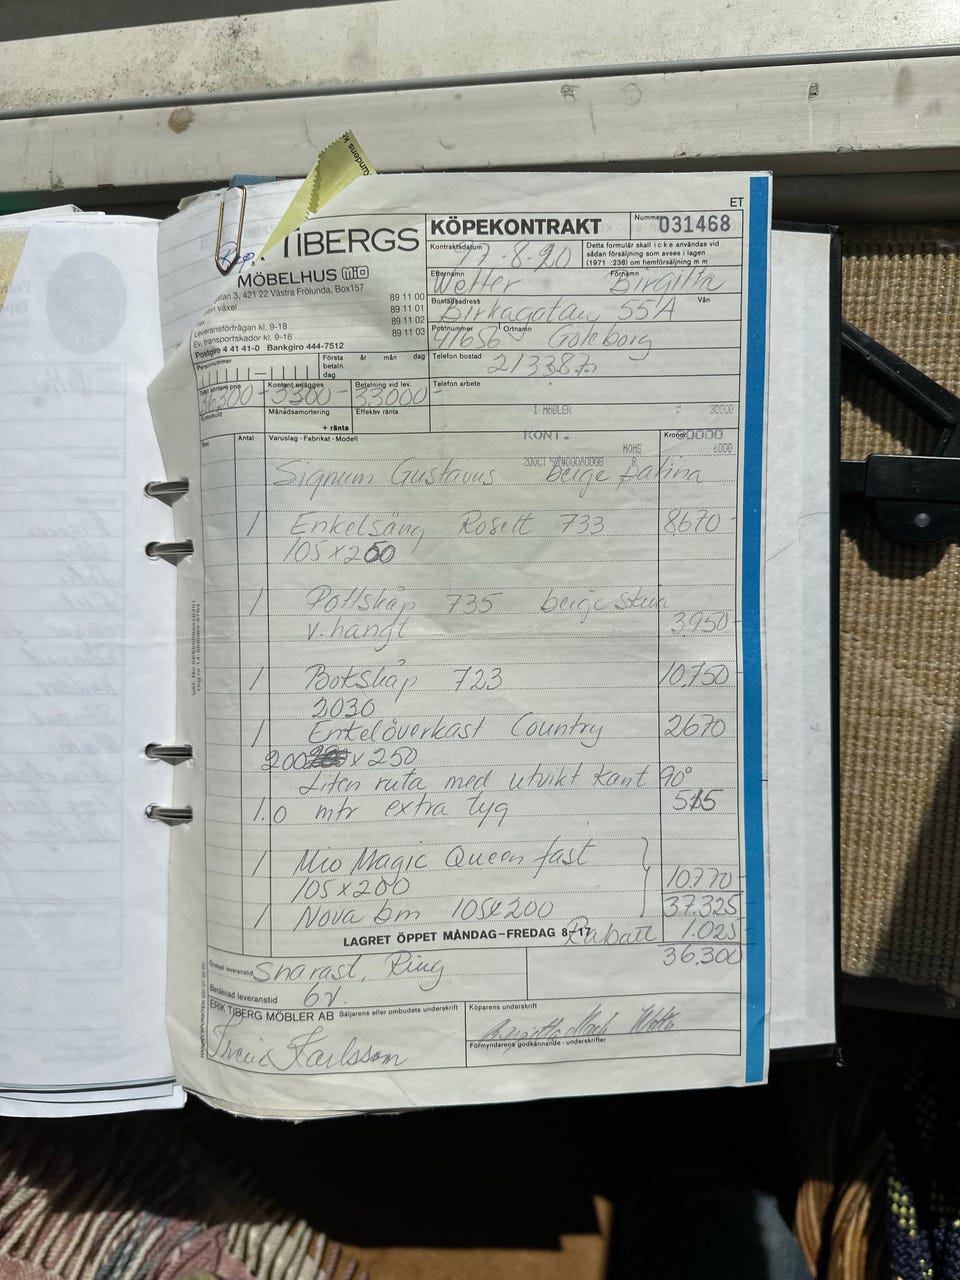 kundens
ET
TIBERGS
MÖBELHUS mio
KÖPEKONTRAKT
Nummer 031468
Kontraktsdatum
Detta formulär skall icke användas vid
sådan försäljning som avses i lagen
(1971 :238) om hemförsäljning m m
Efternamn Förnamn
Wetter Birgitta
3, 421 22 Västra Frölunda, Box157
växel 89 11 00
89 11 01
Leveransförfrågan kl. 9-18 89 11 02
Ev. transportskador kl. 9-16 89 11 03
Postgiro 4 41 41-0 Bankgiro 444-7512
Bostadsadress Vån
Birkagatan 55A
Postnummer Ortnamn
41656 Göteborg
Telefon bostad
Personnummer
Första betaln. år mån dag
dag
Kontant erlägges Betalning vid lev. Telefon arbete
36300- 3300- 33000-
Månadsamortering Effektiv ränta
+ ränta
1 MÖBLER 30000
KONT.
MOMS 6000
Antal Varuslag - Fabrikat - Modell Kronor
Signum Gustavus beige patina
1 Enkelsäng Rosett 733 8670-
105x200
1 Pottskåp 735 beige
v.hängt 3950-
1 Bokskåp 723 10.750
2030
1 Enkelöverkast Country 2670
200 x 250
Liten ruta med utvikt kant 90°
1.0 mtr extra tyg 515
1 Mio Magic Queen fast
105x200 10.770-
1 Nova bm 105x200 37.325
LAGRET ÖPPET MÅNDAG–FREDAG 8–17 Rabatt 1.025-
36.300
Önskad leveranstid Snarast, Ring
Beräknad leveranstid 6v.
ERIK TIBERG MÖBLER AB Säljarens eller ombudets underskrift
Köparens underskrift
Karlsson
Förmyndarens godkännande - underskrifter